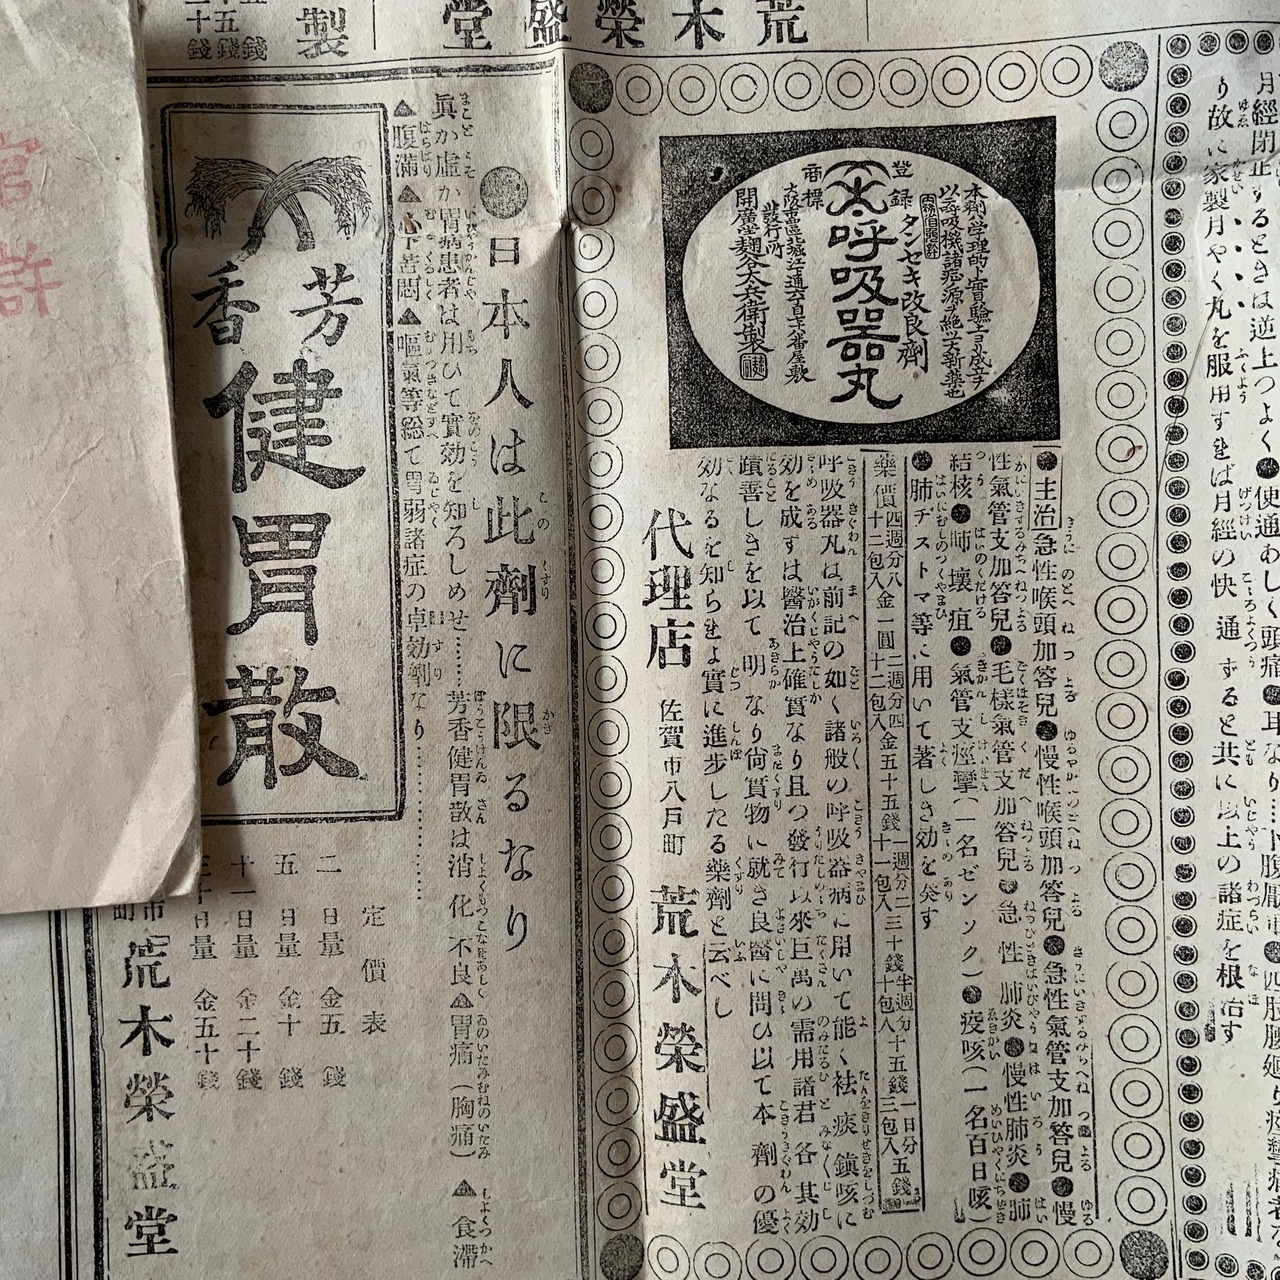 荒木榮盛堂
製
月經閉止するときは逆上つよく●便通あしく頭痛●耳なり
り故に家製月やく丸を服用すれば月經の快通すると共に以上の諸症を根治す
登錄
商標
本劑ハ學理的ト實驗上ヨリ成立テ
以テ呼吸機諸症ノ源ヲ絶ツ大新藥也
タンセキ改良劑
呼吸器丸
大阪市西區北堀江通六丁目六番屋敷
發行所
開廣堂麹谷太兵衛製
●主治急性喉頭加答兒●慢性喉頭加答兒●急性氣管支加答兒●慢
性氣管支加答兒●毛樣氣管支加答兒●急性肺炎●慢性肺炎●肺
結核●肺壞疽●氣管支痙攣(一名ゼンソク)●疫咳(一名百日咳)
●肺ヂストマ等に用いて著しき効を発す
藥價
四週分八十二包入金一圓
二週分四十二包入金五十五錢
一週分二十一包入三十錢
半週分十包入十五錢
一日分三包入五錢
呼吸器丸は前記の如く諸般の呼吸器病に用いて能く袪痰鎮咳に
効を成すは醫治上確實なり且つ發行以來巨萬の需用諸君各其効
蹟善しきを以て明なり尙質物に就き良醫に問ひ以て本劑の優
効なるを知らせよ實に進步したる藥劑と云べし
代理店
佐賀市八戸町
荒木榮盛堂
●日本人は此劑に限るなり
眞か虛か胃病患者は用ひて實効を知ろしめせ……芳香健胃散は消化不良▲胃痛(胸痛)▲食滯
▲腹滿▲心下苦悶▲嘔氣等総て胃弱諸症の卓効劑なり…………
芳香
健胃散
定價表
二日量 金五錢
五日量 金十錢
十一日量 金二十錢
三十日量 金五十錢
荒木榮盛堂
官許